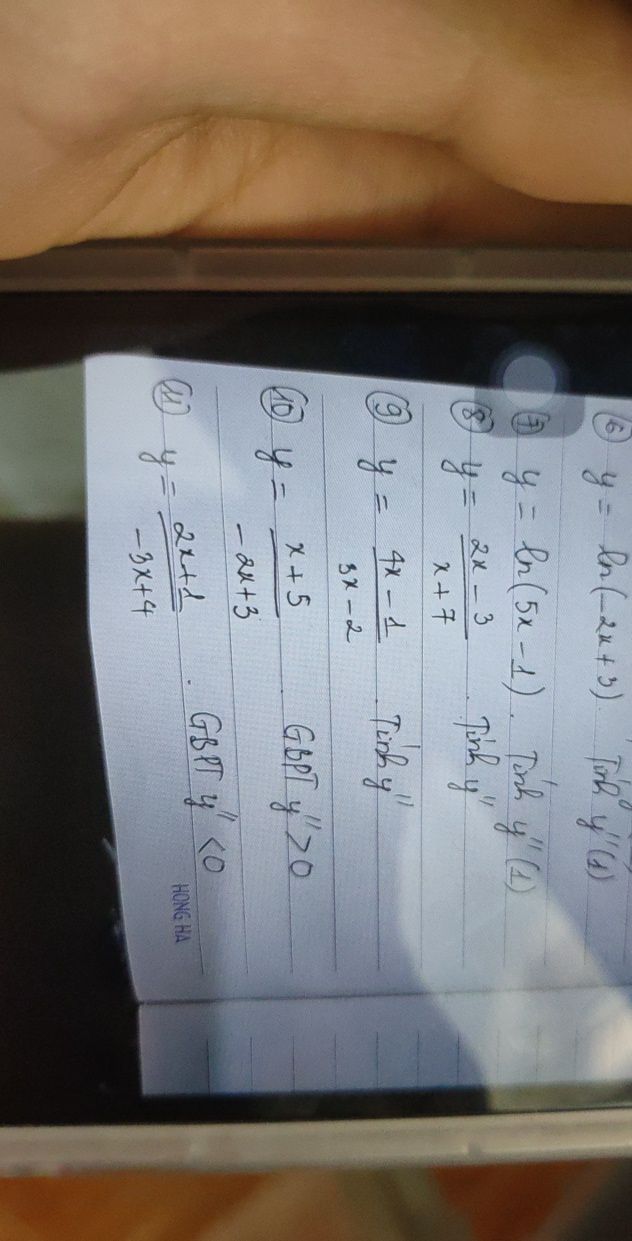 ⑥ y = ln(-2x+3). Tính y''(1)
⑦ y = ln(5x-1). Tính y''(1)
⑧ y = \frac{2x-3}{x+7}. Tính y''
⑨ y = \frac{4x-1}{3x-2}. Tính y''
⑩ y = \frac{x+5}{-2x+3}. GBPT y''>0
⑪ y = \frac{2x+1}{-3x+4}. GBPT y''<0
HONG HA